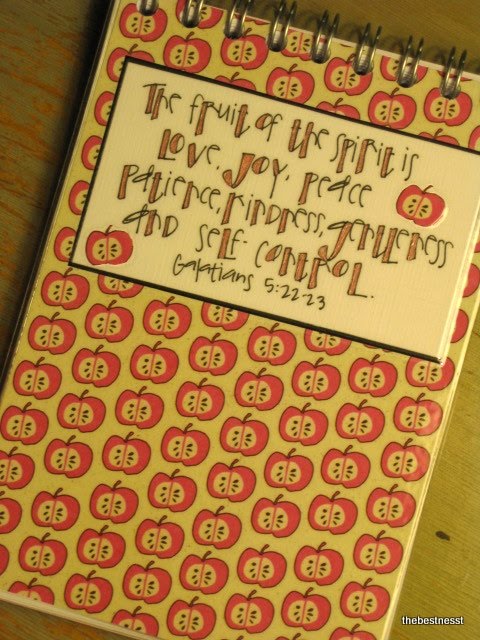 The fruit of the spirit is
Love, Joy, Peace
Patience, Kindness, Gentleness
and self-control.
Galatians 5:22-23
thebestnesst